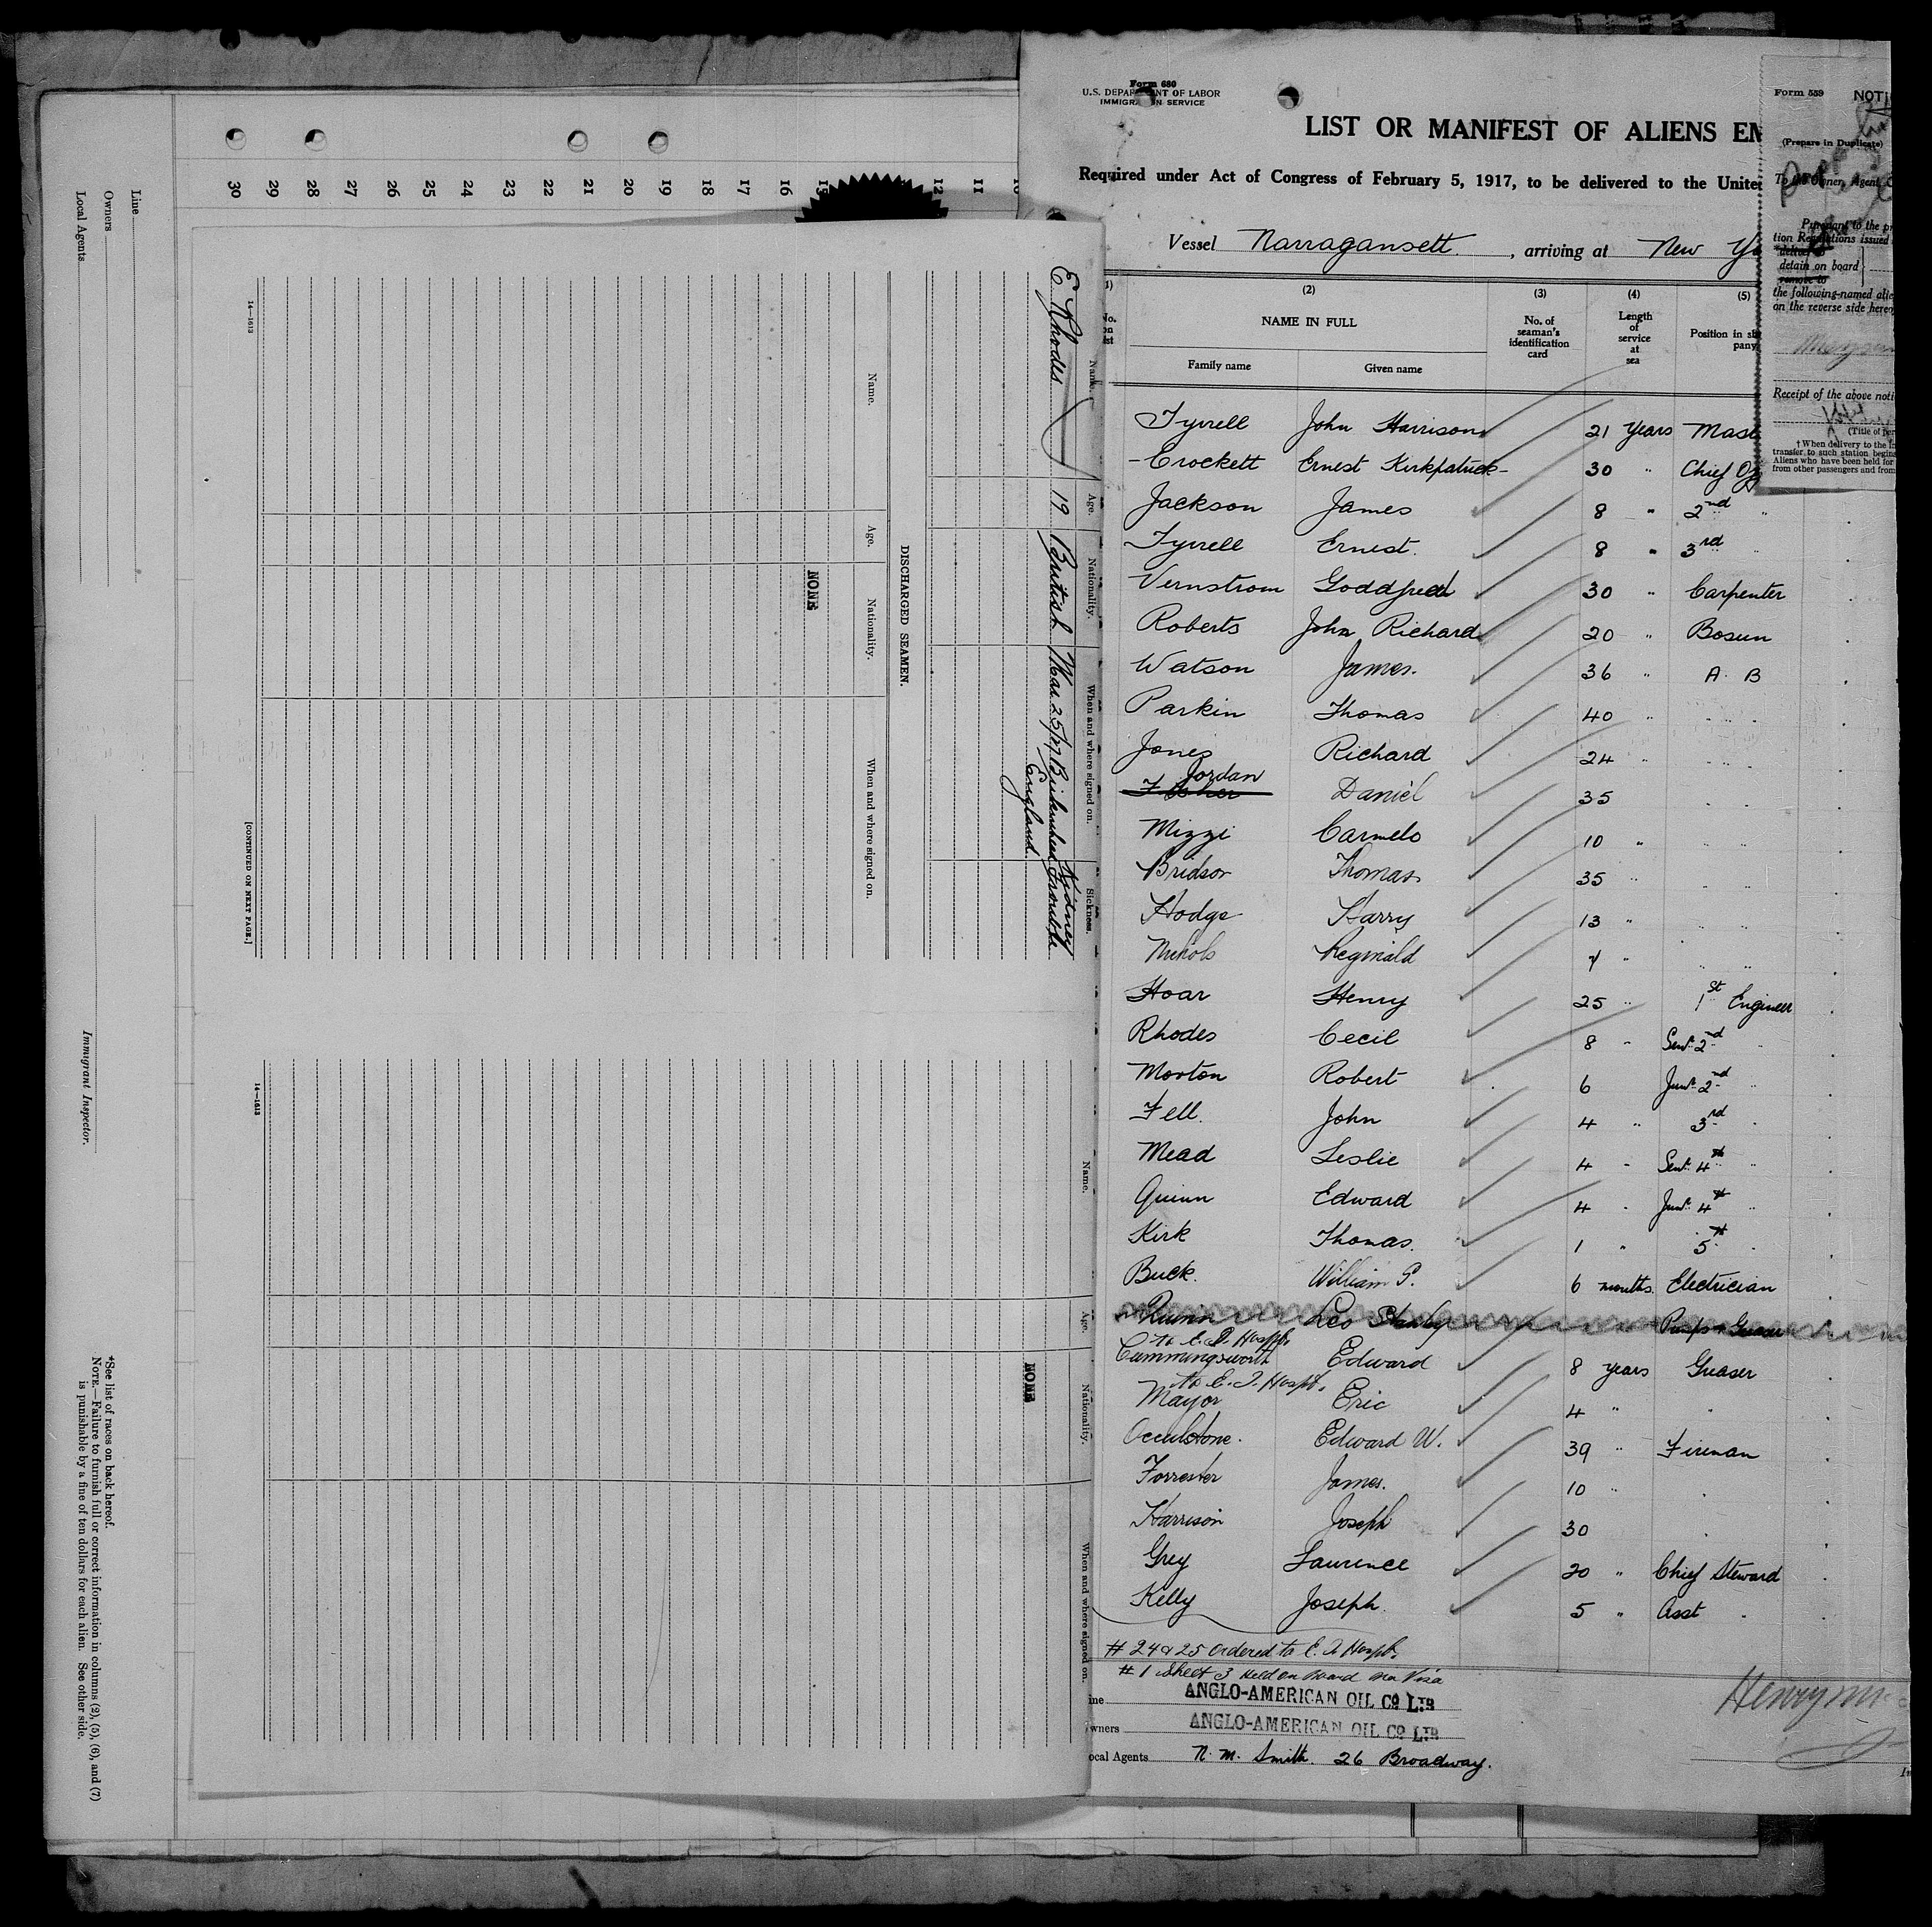 Form 680
U.S. DEPARTMENT OF LABOR
IMMIGRATION SERVICE
LIST OR MANIFEST OF ALIENS EM
Required under Act of Congress of February 5, 1917, to be delivered to the Unite
Vessel Narragansett, arriving at New Yo
(1) (2) (3) (4) (5)
No. on list NAME IN FULL No. of seaman's identification card Length of service at sea Position in shi pany
Family name Given name
Tyrrell John Harrison 21 Years Mast
Crockett Ernest Kirkpatrick 30 " Chief Off
Jackson James 8 " 2nd "
Tyrrell Ernest. 8 " 3rd "
Vernstrom Goddfred 30 " Carpenter
Roberts John Richard 20 " Bosun
Watson James. 36 " A. B
Parkin Thomas 40 " " "
Jones Richard 24 " " "
Jordan
Fisher Daniel 35 " "
Mizzi Carmelo 10 " " "
Bridson Thomas 35 " " "
Hodge Harry 13 " " "
Nichols Reginald 4 " " "
Hoar Henry 25 " 1st Engineer
Rhodes Cecil 8 " Senr 2nd "
Morton Robert 6 Junr 2nd "
Fell. John 4 " 3rd "
Mead Leslie 4 " Senr 4th "
Quinn Edward 4 " Junr 4th "
Kirk Thomas. 1 " 5th "
Buck. William P. 6 months. Electrician
Quinn Leo Stanley Pump Greaser
To E. I. Hospt.
Cummingsworth Edward 8 years Greaser
To E. I. Hospt.
Mayor Eric 4 " "
Occulstone. Edward W. 39 " Fireman
Forrester James. 10 " "
Harrison Joseph 30 "
Grey Laurence 20 " Chief Steward
Kelly Joseph. 5 " Asst "
# 24 & 25 Ordered to E. I. Hospt.
# 1 Sheet 3 Held on Board non Visa
ine ANGLO-AMERICAN OIL CO LTD
wners ANGLO-AMERICAN OIL CO LTD
ocal Agents N. M. Smith. 26 Broadway.
Form 559 NOTI
(Prepare in Duplicate)
To the Owner, Agent, C
Pursuant to the pr
tion Regulations issued
deliver to
detain on board
remove to
the following-named alie
on the reverse side hereo
Receipt of the above noti
(Title of per
† When delivery to the I
transfer to such station begins
Aliens who have been held for
from other passengers and from
Name. Age. Nationality. When and where signed on. Sickness.
E Rhodes 19 British Mar. 25/27 Birkenhead England Kidney Trouble
DISCHARGED SEAMEN.
Name. Age. Nationality. When and where signed on.
NONE
14—1613
[CONTINUED ON NEXT PAGE.]
Name. Age. Nationality. When and where signed on.
NONE
14—1613
30 29 28 27 26 25 24 23 22 21 20 19 18 17 16 15 12 11 10
Line
Owners
Local Agents
Immigrant Inspector.
*See list of races on back hereof.
NOTE.—Failure to furnish full or correct information in columns (2), (5), (6), and (7)
is punishable by a fine of ten dollars for each alien. See other side.